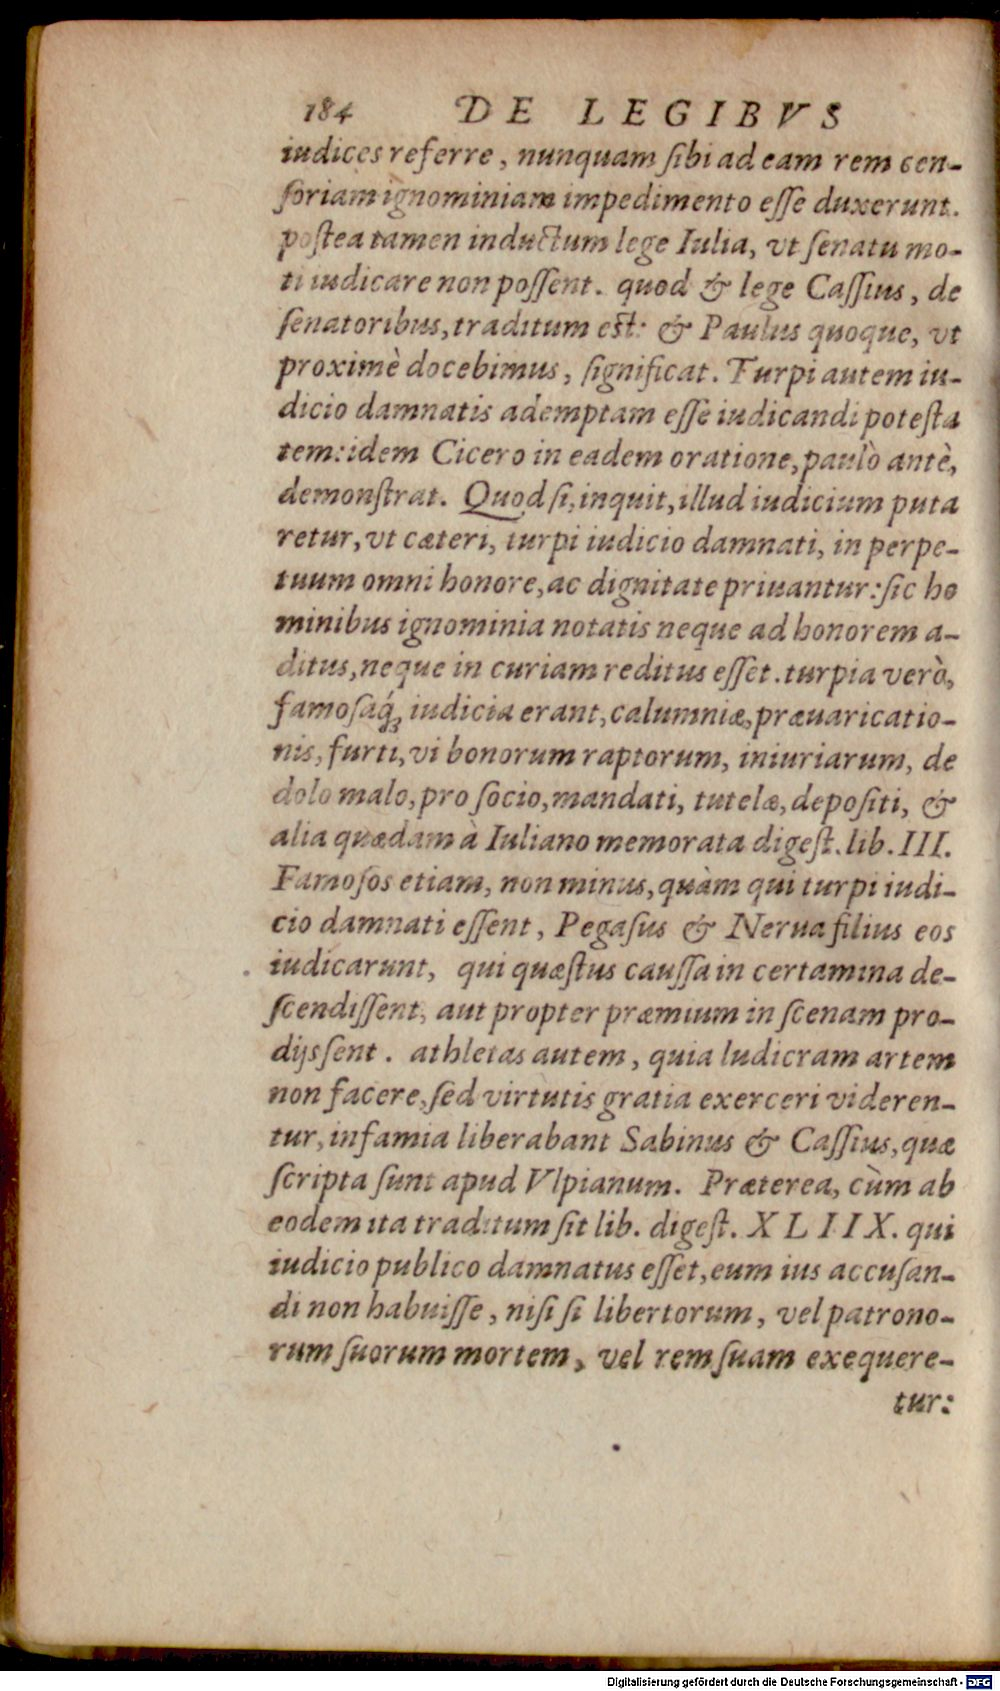 184 DE LEGIBVS
iudices referre, nunquam ſibi ad eam rem cen-
ſoriam ignominiam impedimento eſſe duxerunt.
poſtea tamen inductum lege Iulia, vt ſenatu mo-
ti iudicare non poſſent. quod & lege Caſſius, de
ſenatoribus, traditum est: & Paulus quoque, vt
proximè docebimus, ſignificat. Turpi autem iu-
dicio damnatis ademptam eſſe iudicandi poteſta
tem: idem Cicero in eadem oratione, paulò antè,
demonſtrat. Quod ſi, inquit, illud iudicium puta
retur, vt cæteri, turpi iudicio damnati, in perpe-
tuum omni honore, ac dignitate priuantur: ſic ho
minibus ignominia notatis neque ad honorem a-
ditus, neque in curiam reditus eſſet. turpia verò,
famoſaq́ꝫ iudicia erant, calumniæ, præuaricatio-
nis, furti, vi bonorum raptorum, iniuriarum, de
dolo malo, pro ſocio, mandati, tutelæ, depoſiti, &
alia quædam à Iuliano memorata digeſt. lib. III.
Famoſos etiam, non minus, quàm qui turpi iudi-
cio damnati eſſent, Pegaſus & Nerua filius eos
iudicarunt, qui quæſtus cauſſa in certamina de-
ſcendiſſent, aut propter præmium in ſcenam pro-
dijsſent. athletas autem, quia ludicram artem
non facere, ſed virtutis gratia exerceri videren-
tur, infamia liberabant Sabinus & Caſſius, quæ
ſcripta ſunt apud Vlpianum. Præterea, cùm ab
eodem ita traditum ſit lib. digeſt. XLIIX. qui
iudicio publico damnatus eſſet, eum ius accuſan-
di non habuiſſe, niſi ſi libertorum, vel patrono-
rum ſuorum mortem, vel rem ſuam exequere-
tur:
Digitalisierung gefördert durch die Deutsche Forschungsgemeinschaft - DFG